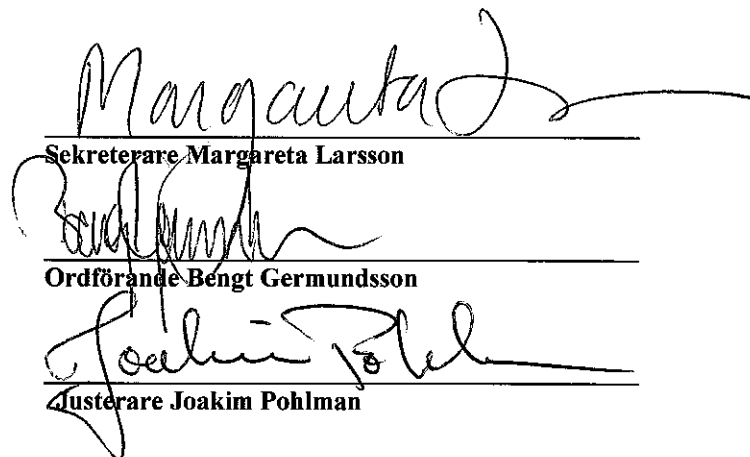 Margareta L
Sekreterare Margareta Larsson
Bengt Germundsson
Ordförande Bengt Germundsson
Joakim Pohlman
Justerare Joakim Pohlman